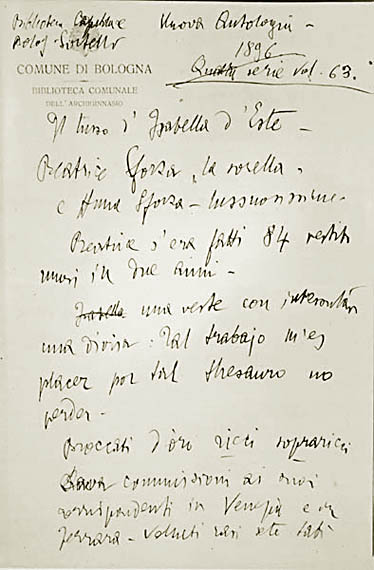 Biblioteca Capitolare Nuova Antologia -
1896
Quarta serie vol. 63.
COMUNE DI BOLOGNA
BIBLIOTECA COMUNALE
DELL'ARCHIGINNASIO
Il lusso d'Isabella d'Este -
Beatrice Sforza "la sorella"
e Anna Sforza - lussuosissime -
Beatrice s'era fatti 84 vestiti
nuovi in due anni -
Isabella una veste con intercontàn
una divisa: Tal trabajo m'es
placer por tal thesauro no
perder -
Broccati d'oro ricci sopraricci
Dava commissioni ai suoi
corrispondenti in Venezia e in
Ferrara - velluti rasi sete tabì